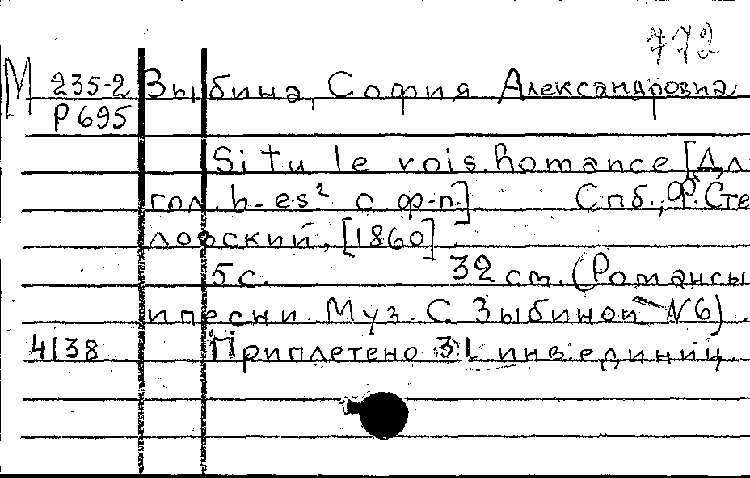 772
М 235-2 Зыбина, София Александровна
Р 695
Si tu le vois. Romance [Дл
гол. b-es² с ф-п.] Спб., Ф. Сте
ловский, [1860].
5 с. 32 см. (Романсы
и песни. Муз. С. Зыбиной N6).
4138 Приплетено 31 инв. единиц